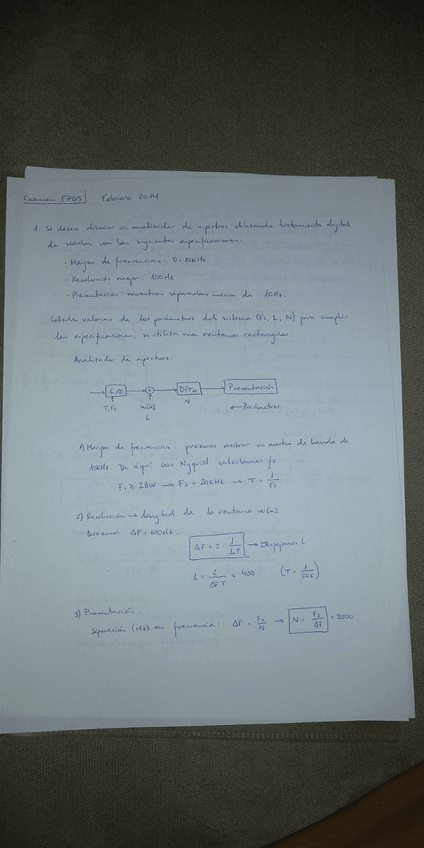 Examen FPDS Febrero 2014
1. Se desea diseñar un analizador de espectros utilizando tratamiento digital
de señales con las siguientes especificaciones:
- Margen de frecuencias: 0-10kHz
- Resolución mejor 100Hz
- Presentación muestras separadas menos de 10Hz.
Calcule valores de los parámetros del sistema (Fs, L, N) para cumplir
las especificaciones, si utiliza una ventana rectangular.
Analizador de espectros:
C/D x DFT N Presentación
T, Fs w[n] N ← Parámetros
L
1) Margen de frecuencias: queremos mostrar un ancho de banda de
10kHz. De aquí con Nyquist calculamos fs
Fs ≥ 2BW → Fs = 20kHz → T = 1/Fs
2) Resolución → longitud de la ventana w[n].
ΔF = 100Hz.
ΔF = 2 · 1/LT → Despejamos L
L = 2/ΔF T = 400 (T = 1/20k)
3) Presentación.
Separación (Hz) en frecuencia: ΔF = Fs/N → N = Fs/ΔF = 2000